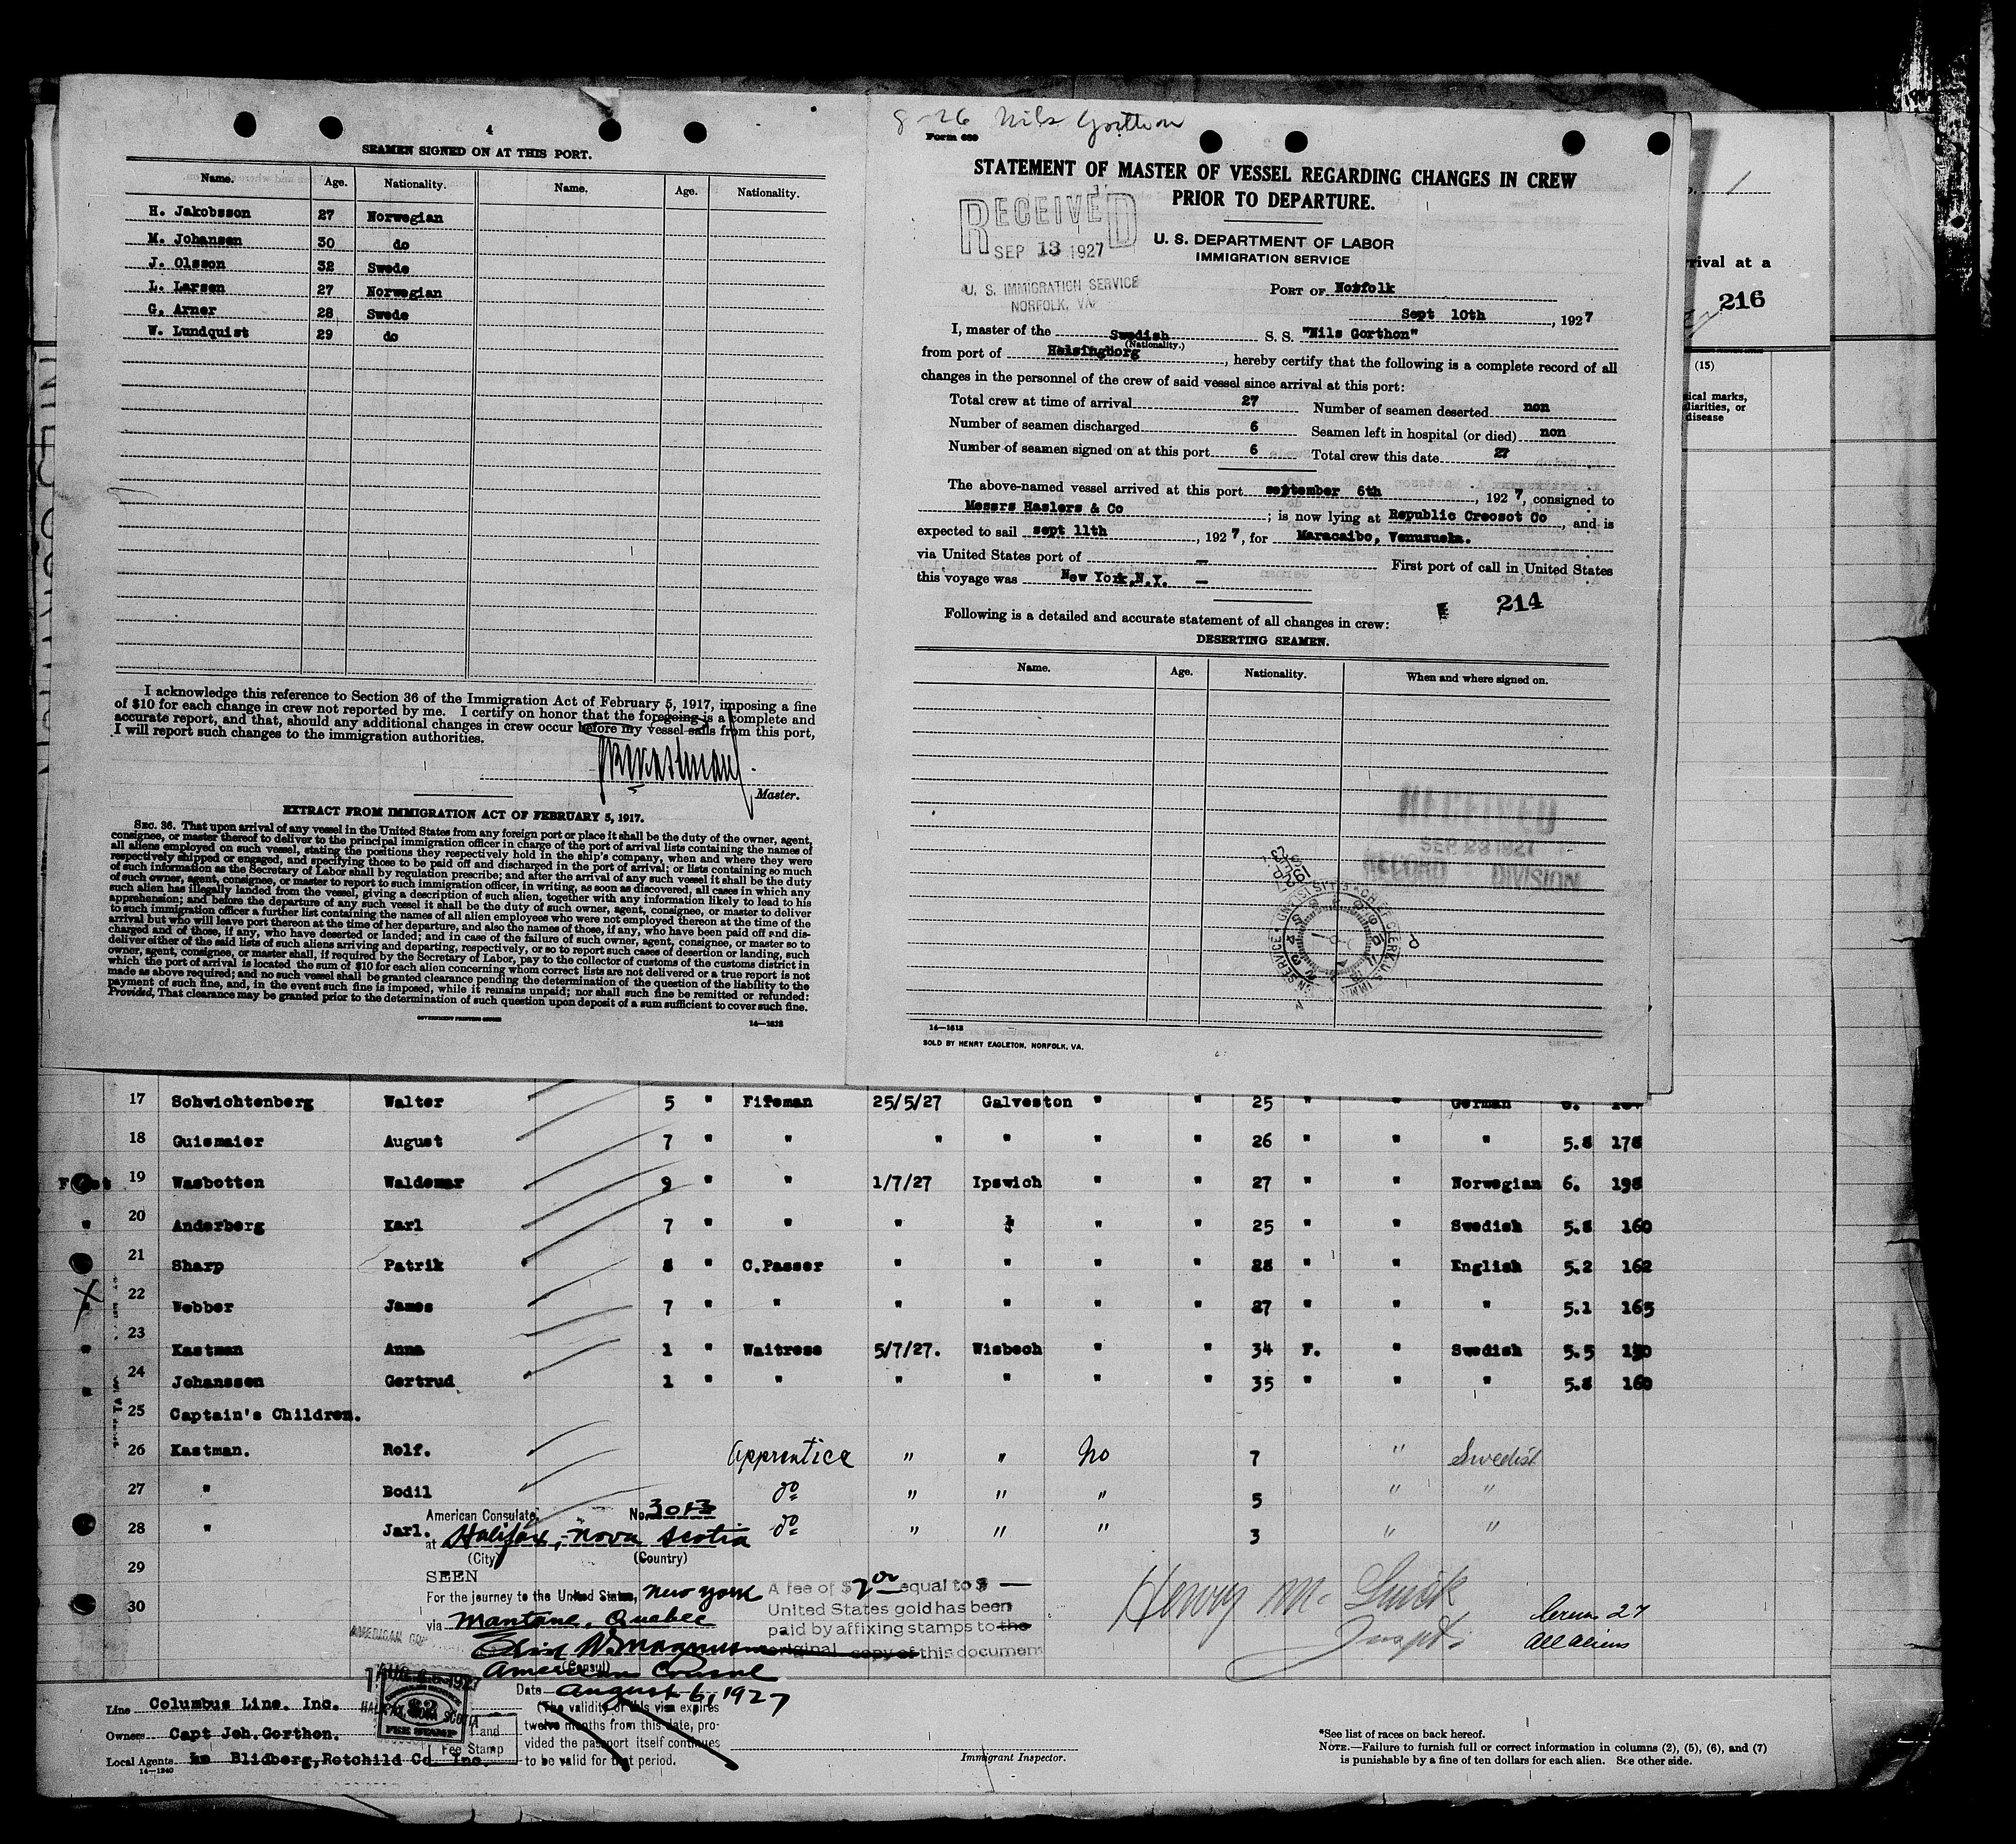 4
SEAMEN SIGNED ON AT THIS PORT.
Name. Age. Nationality. Name. Age. Nationality.
H. Jakobsson 27 Norwegian
M. Johansen 30 do
J. Olsson 32 Swede
L. Larsen 27 Norwegian
G. Arner 28 Swede
W. Lundquist 29 do
I acknowledge this reference to Section 36 of the Immigration Act of February 5, 1917, imposing a fine
of $10 for each change in crew not reported by me. I certify on honor that the foregoing is a complete and
accurate report, and that, should any additional changes in crew occur before my vessel sails from this port,
I will report such changes to the immigration authorities.
Master.
EXTRACT FROM IMMIGRATION ACT OF FEBRUARY 5, 1917.
SEC. 36. That upon arrival of any vessel in the United States from any foreign port or place it shall be the duty of the owner, agent,
consignee, or master thereof to deliver to the principal immigration officer in charge of the port of arrival lists containing the names of
all aliens employed on such vessel, stating the positions they respectively hold in the ship's company, when and where they were
respectively shipped or engaged, and specifying those to be paid off and discharged in the port of arrival; or lists containing so much
of such information as the Secretary of Labor shall by regulation prescribe; and after the arrival of any such vessel it shall be the duty
of such owner, agent, consignee, or master to report to such immigration officer, in writing, as soon as discovered, all cases in which any
such alien has illegally landed from the vessel, giving a description of such alien, together with any information likely to lead to his
apprehension; and before the departure of any such vessel it shall be the duty of such owner, agent, consignee, or master to deliver
to such immigration officer a further list containing the names of all alien employees who were not employed thereon at the time of the
arrival but who will leave port thereon at the time of her departure, and also the names of those, if any, who have been paid off and dis-
charged and of those, if any, who have deserted or landed; and in case of the failure of such owner, agent, consignee, or master so to
deliver either of the said lists of such aliens arriving and departing, respectively, or so to report such cases of desertion or landing, such
owner, agent, consignee, or master shall, if required by the Secretary of Labor, pay to the collector of customs of the customs district in
which the port of arrival is located the sum of $10 for each alien concerning whom correct lists are not delivered or a true report is not
made as above required; and no such vessel shall be granted clearance pending the determination of the question of the liability to the
payment of such fine, and, in the event such fine is imposed, while it remains unpaid; nor shall such fine be remitted or refunded:
Provided, That clearance may be granted prior to the determination of such question upon deposit of a sum sufficient to cover such fine.
GOVERNMENT PRINTING OFFICE 14—1613
8-26 Nils Gorthon
Form 689
STATEMENT OF MASTER OF VESSEL REGARDING CHANGES IN CREW
PRIOR TO DEPARTURE.
RECEIVED
SEP 13 1927
U. S. IMMIGRATION SERVICE
NORFOLK, VA.
U. S. DEPARTMENT OF LABOR
IMMIGRATION SERVICE
PORT OF Norfolk
Sept 10th, 1927
I, master of the Swedish S. S. "Nils Gorthon"
(Nationality.)
from port of Helsingborg, hereby certify that the following is a complete record of all
changes in the personnel of the crew of said vessel since arrival at this port:
Total crew at time of arrival 27 Number of seamen deserted non
Number of seamen discharged 6 Seamen left in hospital (or died) non
Number of seamen signed on at this port 6 Total crew this date 27
The above-named vessel arrived at this port september 6th, 1927, consigned to
Messrs Haslers & Co; is now lying at Republic Creosot Co, and is
expected to sail sept 11th, 1927, for Maracaibo, Venuzuela.
via United States port of — First port of call in United States
this voyage was New York, N.Y. —
214
Following is a detailed and accurate statement of all changes in crew:
DESERTING SEAMEN.
Name. Age. Nationality. When and where signed on.
RECEIVED
SEP 23 1927
RECORD DIVISION
14—1613
SOLD BY HENRY EAGLETON, NORFOLK, VA.
1
rrival at a
216
(15)
sical marks,
uliarities, or
disease
17 Schwichtenberg Walter 5 " Fifeman 25/5/27 Galveston " " 25 " " German 6.
18 Guismaier August 7 " " " " " " 26 " " " 5.8 178
19 Wasbotten Waldemar 9 " " 1/7/27 Ipswich " " 27 " " Norwegian 6. 198
20 Anderberg Karl 7 " " " " " " 25 " " Swedish 5.8 160
21 Sharp Patrik 8 " C.Passer " " " " 28 " " English 5.2 162
22 Webber James 7 " " " " " " 27 " " " 5.1 165
23 Kastman Anna 1 " Waitress 5/7/27. Wisbech " " 34 F. " Swedish 5.5 150
24 Johanssen Gertrud 1 " " " " " " 35 " " " 5.8 160
25 Captain's Children.
26 Kastman. Rolf. Apprentice " " No 7 " Swedish
27 " Bodil do " " " 5 " "
28 " Jarl. do " " " 3 " "
29
30
American Consulate, No. 3013
at Halifax, Nova Scotia
(City) (Country)
SEEN
For the journey to the United States, New York
via Mantane, Quebec
American Consul
(Consul)
Date August 6, 1927
(The validity of this visa expires
twelve months from this date, pro-
vided the passport itself continues
to be valid for that period.
A fee of $2.00 equal to $ —
United States gold has been
paid by affixing stamps to the
original copy of this document
Henry Mc Guick
Inspt.
Crew 27
All aliens
AUG 6 1927
HALIFAX, NOVA SCOTIA
$2
FEE STAMP
Fee Stamp
Line Columbus Line. Inc.
Owners Capt Joh.Gorthon.
Local Agents Blidberg,Rotchild Co Inc.
14—1240
Immigrant Inspector.
*See list of races on back hereof.
NOTE.—Failure to furnish full or correct information in columns (2), (5), (6), and (7)
is punishable by a fine of ten dollars for each alien. See other side.